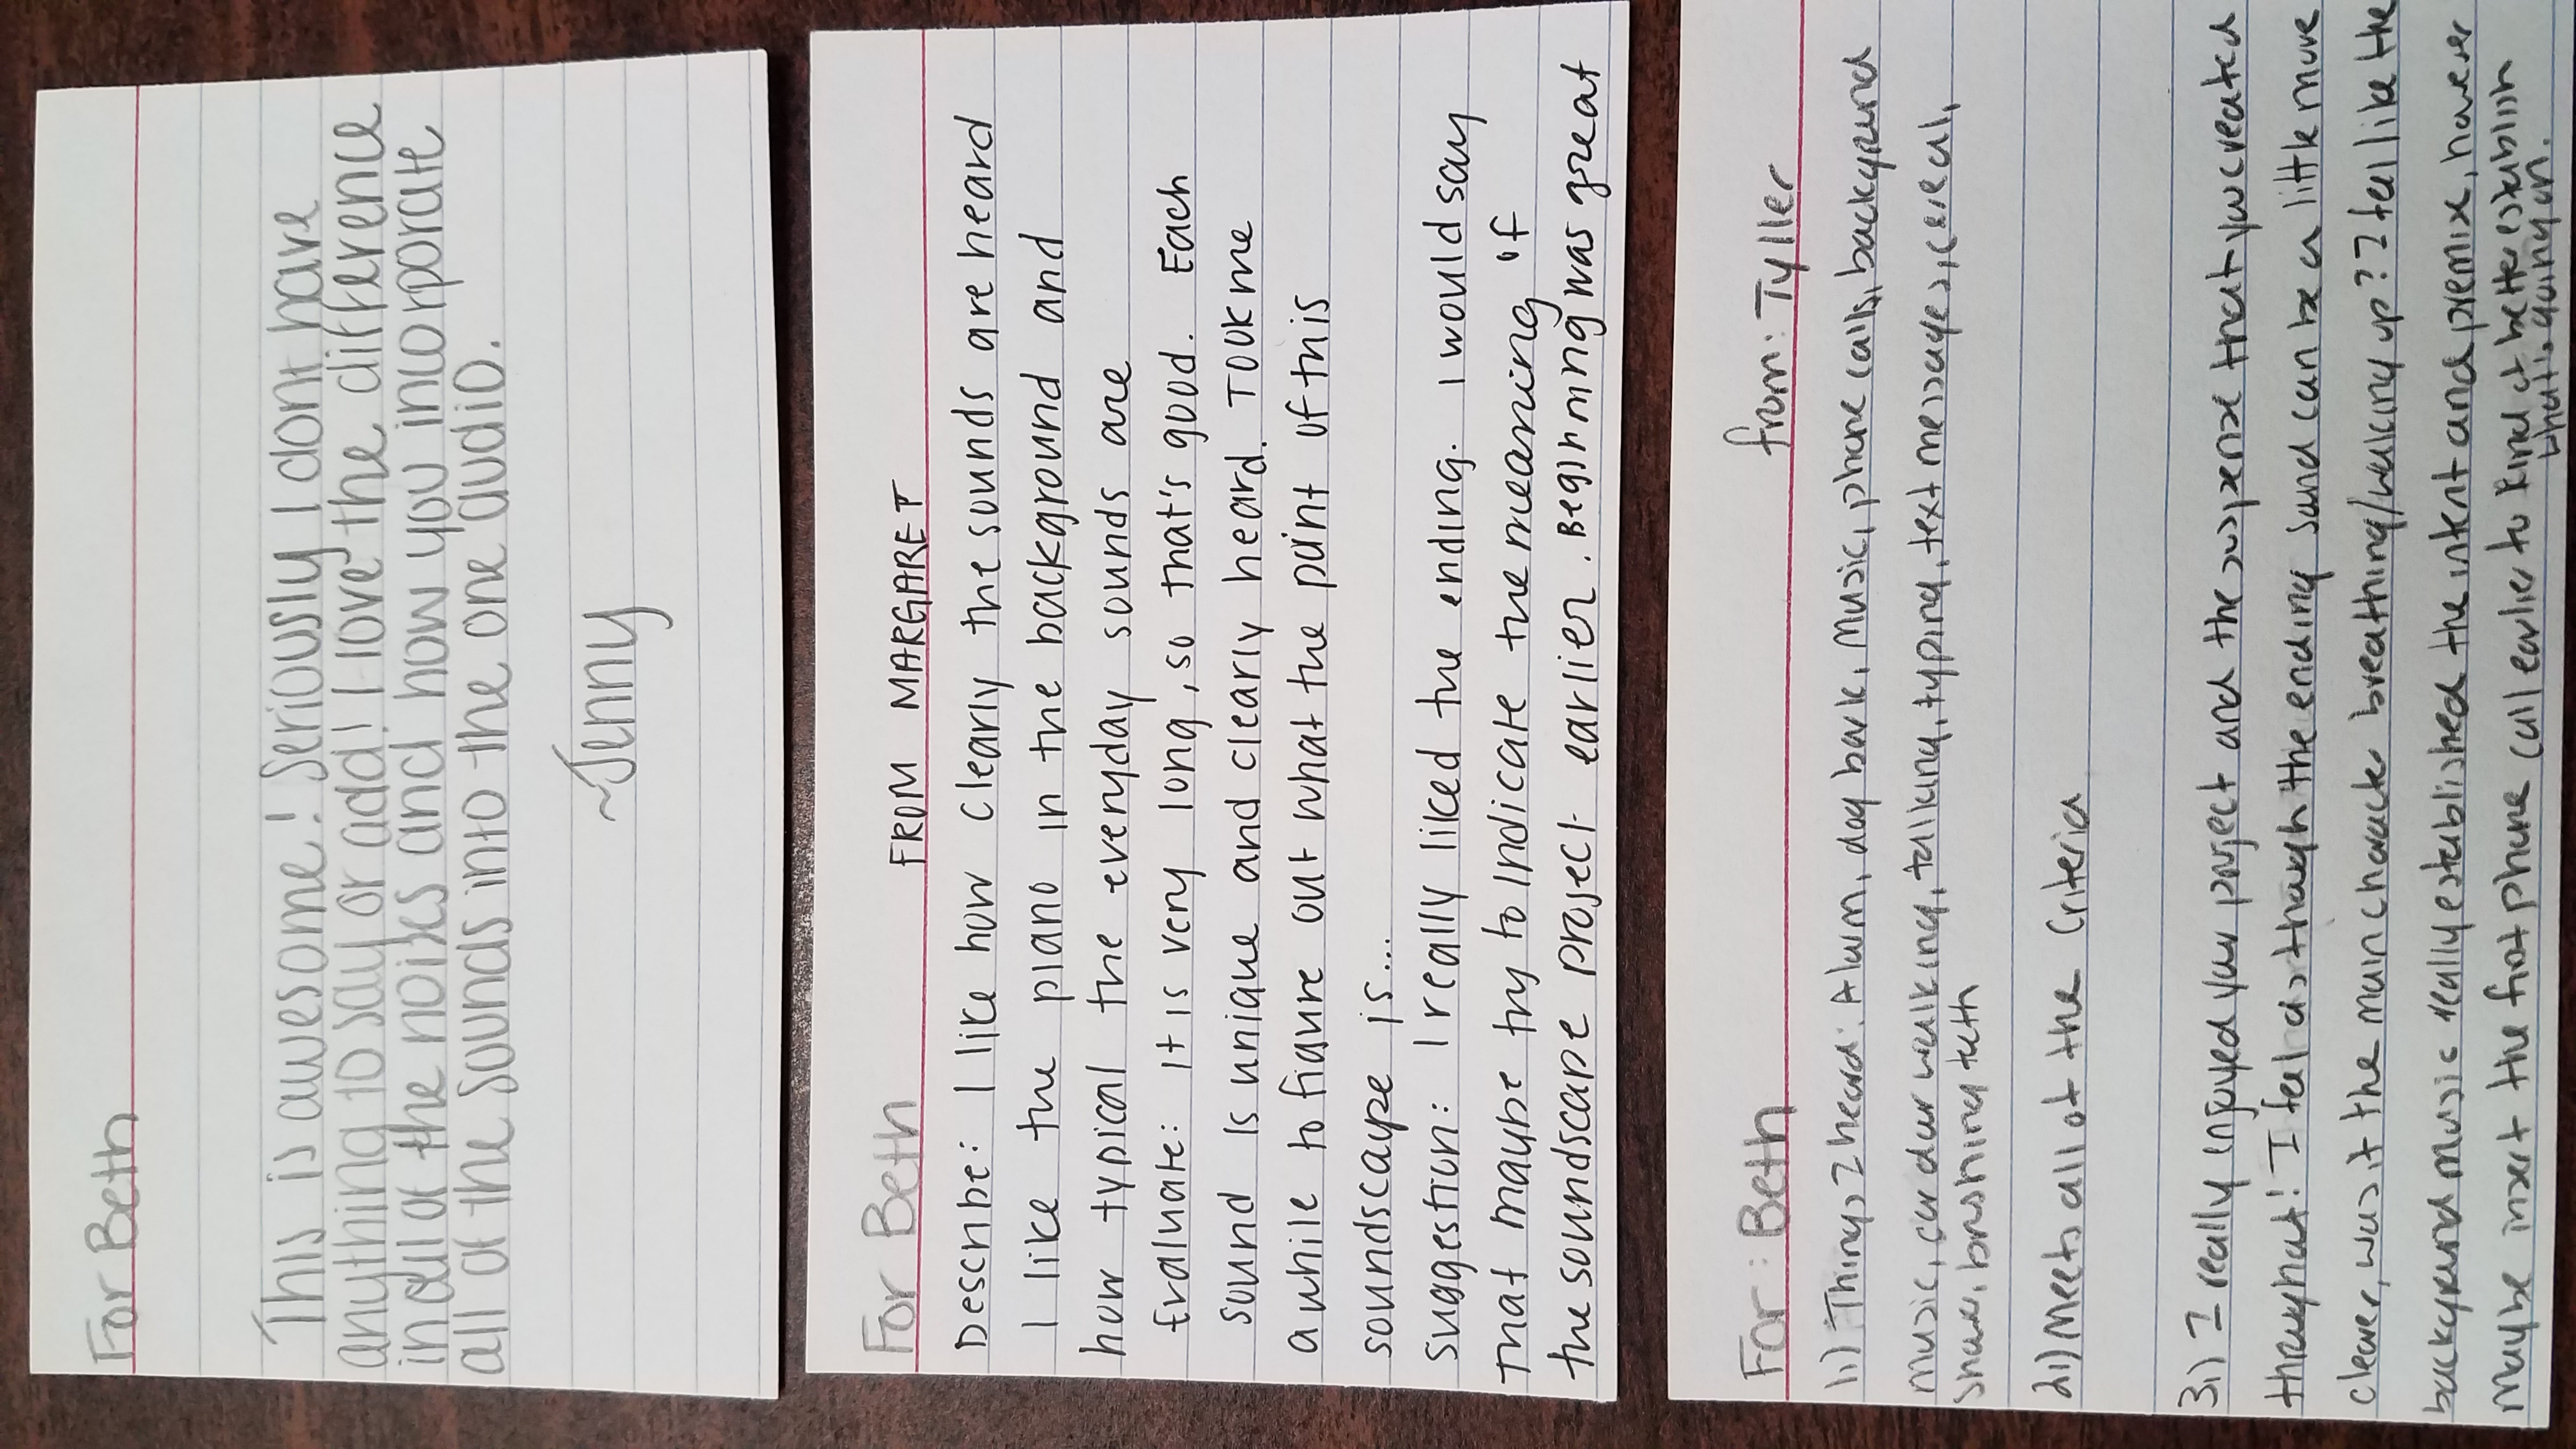 For Beth
This is awesome! Seriously I dont have
anything to say or add! I love the difference
in all of the noises and how you incorporate
all of the sounds into the one audio.
~Jenny
For Beth FROM MARGARET
Describe: I like how clearly the sounds are heard
I like the piano in the background and
how typical the everyday sounds are
Evaluate: It is very long, so that's good. Each
sound is unique and clearly heard. Took me
a while to figure out what the point of this
soundscape is...
Suggestion: I really liked the ending. I would say
that maybe try to indicate the meaning of
the soundscape project earlier. Beginning was great
For: Beth from: Tyller
1.) Things I heard: Alarm, dog bark, Music, phone calls, background
music, car door walking, talking, typing, text messages, cereal,
brushing teeth
2.) Meets all of the Criteria
3.) I really enjoyed your project and the suspense that you created
throughout! I feel as though the ending sound can be a little more
clearer, was it the main character breathing/waking up? I feel like the
background music really established the intent and premise, however
Maybe insert the first phone call earlier to kind of better establish
what's going on.